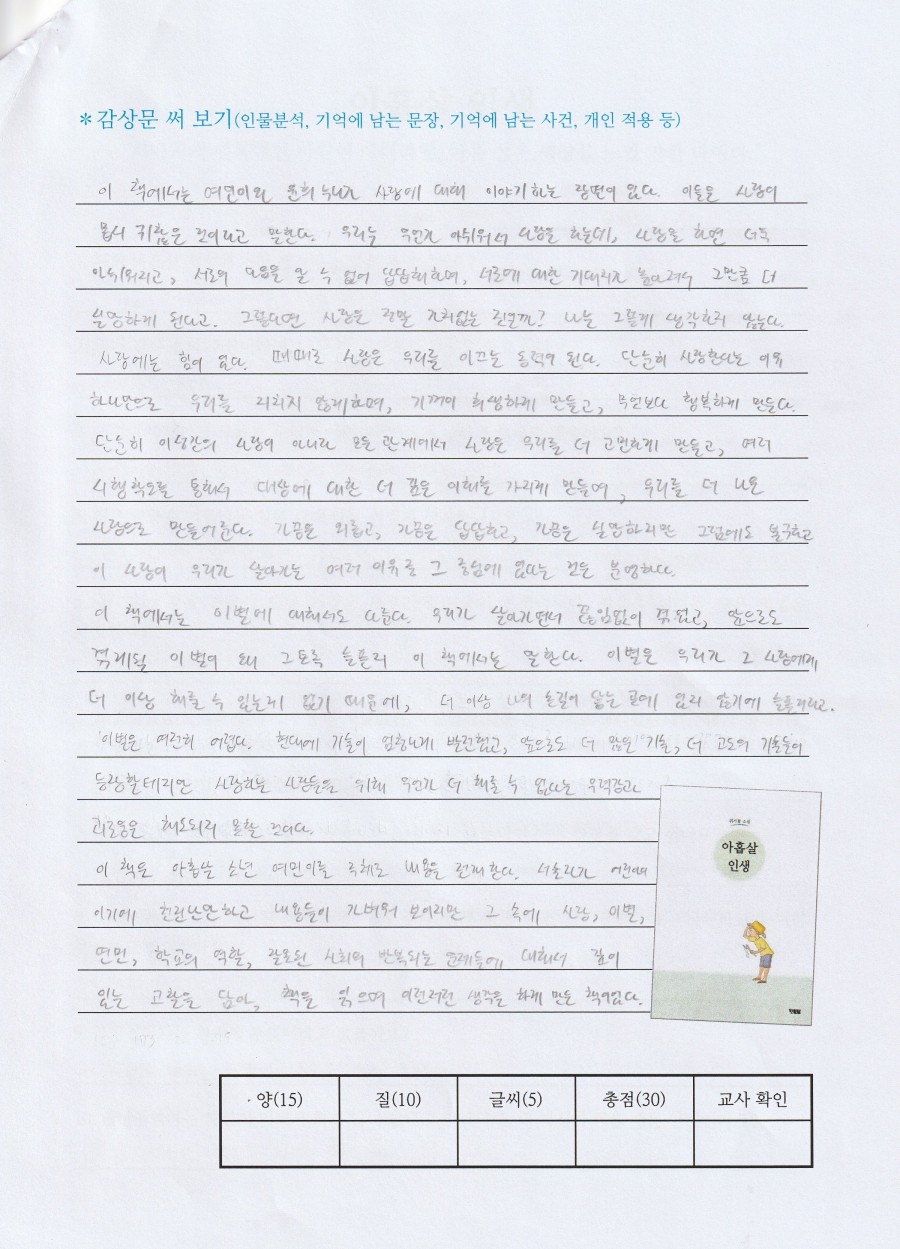 *감상문 써 보기(인물분석, 기억에 남는 문장, 기억에 남는 사건, 개인 적용 등)
이 책에서는 여민이와 윤희 누나가 사랑에 대해 이야기하는 장면이 있다. 이들은 사랑이
몹시 귀찮은 것이라고 말한다. 우리는 무언가 아쉬워서 사랑을 하는데, 사랑을 하면 더욱
아쉬워지고, 서로의 마음을 알 수 없어 답답해하며, 서로에 대한 기대치가 높아져서 그만큼 더
실망하게 된다고. 그렇다면 사랑은 정말 가치없는 것일까? 나는 그렇게 생각하지 않는다.
사랑에는 힘이 있다. 때때로 사랑은 우리를 이끄는 동력이 된다. 단순히 사랑한다는 이유
하나만으로 우리를 지치지 않게하며, 기꺼이 희생하게 만들고, 무엇보다 행복하게 만든다.
단순히 이성간의 사랑이 아니라 모든 관계에서 사랑은 우리를 더 고민하게 만들고, 여러
시행착오를 통해서 대상에 대한 더 깊은 이해를 가지게 만들며, 우리를 더 나은
사람으로 만들어준다. 가끔은 외롭고, 가끔은 답답하고, 가끔은 실망하지만 그럼에도 불구하고
이 사랑이 우리가 살아가는 여러 이유 중 그 중심에 있다는 것은 분명하다.
이 책에서는 이별에 대해서도 다룬다. 우리가 살아가면서 끊임없이 겪었고, 앞으로도
겪게될 이별이 왜 그토록 슬픈지 이 책에서는 말한다. 이별은 우리가 그 사람에게
더 이상 해줄 수 있는게 없기 때문에, 더 이상 나의 손길이 닿는 곳에 있지 않기에 슬픈거라고.
이별은 여전히 어렵다. 현대에 기술이 엄청나게 발전했고, 앞으로도 더 많은 기술, 더 고도의 기술들이
등장할테지만 사랑하는 사람들을 위해 무언가 더 해줄 수 없다는 무력감과
괴로움은 해소되지 못할 것이다.
이 책은 아홉살 소년 여민이를 주체로 내용을 전개한다. 서술자가 어린아
이기에 천진난만하고 내용들이 가벼워 보이지만 그 속에 사랑, 이별,
연민, 학교의 역할, 잘못된 사회의 반복되는 문제들에 대해서 깊이
있는 고찰을 담아, 책을 읽으며 이런저런 생각을 하게 만든 책이었다.
위기철 소설
아홉살
인생
양(15) 질(10) 글씨(5) 총점(30) 교사 확인